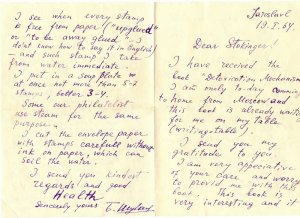 Jaroslavl
19.I.64
Dear Stekinger!
I have received the
book "Detoxication Mechanism"
I am only to-day coming
to home from Moscow and
this book is already waiting
for me on my table
(writing table).
I send you my
gratitude to you.
I am very appreciative
of your care and worry
to provide me with this
book. This book is
very interesting and it
I see when every stamp
is free from paper ("unglued"
or "to be away glued" - I
don't know how to say it in English)
- and such stamp I take
from water immediate
I put in a soup plate
at once not more than 5-7
stamps, better 3-4.
Some our philatelist
use steam for the same
purpose.
I cut the envelope paper
with stamps carefull without
ink on paper, which can
soil the water.
I send you kindest
regards and good
Health
Sincerely yours